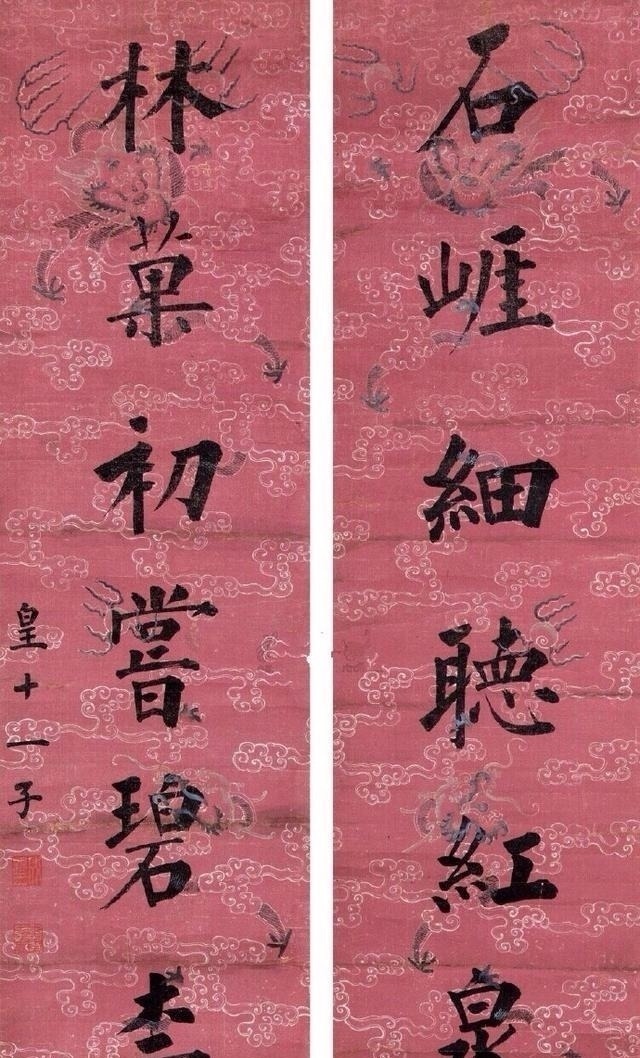 石崕細聽紅泉
林菓初嘗碧柰
皇十一子